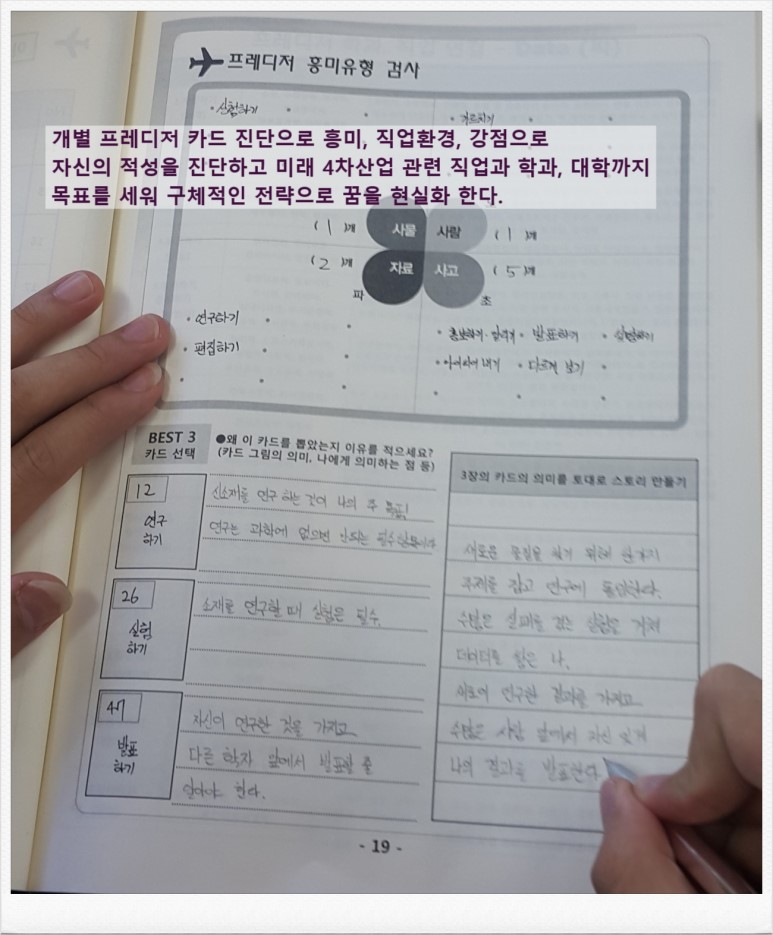 프레디저 흥미유형 검사
• 실험하기 • 가르치기
개별 프레디저 카드 진단으로 흥미, 직업환경, 강점으로
자신의 적성을 진단하고 미래 4차산업 관련 직업과 학과, 대학까지
목표를 세워 구체적인 전략으로 꿈을 현실화 한다.
( 1 )개 사물 사람 ( 1 )개
( 2 )개 자료 사고 ( 5 )개
파 초
• 연구하기
• 편집하기
• 발표하기
• 아이디어 내기 • 다르게 보기
BEST 3
카드 선택
●왜 이 카드를 뽑았는지 이유를 적으세요?
(카드 그림의 의미, 나에게 의미하는 점 등)
12
연구
하기
신소재를 연구 하는 것이 나의 주 목표!
연구는 과학에 없으면 안되는
26
실험
하기
소재를 연구할 때 실험은 필수.
47
발표
하기
자신이 연구한 것을 가지고
다른 학자 앞에서 발표할 줄
알아야 한다.
3장의 카드의 의미를 토대로 스토리 만들기
새로운 물질을 찾기 위해 한가지
주제를 잡고 연구에 돌입한다.
수많은 실패를 겪은 실험을 거쳐
데이터를 쌓은 나.
연구한 결과를 가지고
수많은 사람 앞에서 자신 있게
나의 결과를 발표한다
- 19 -